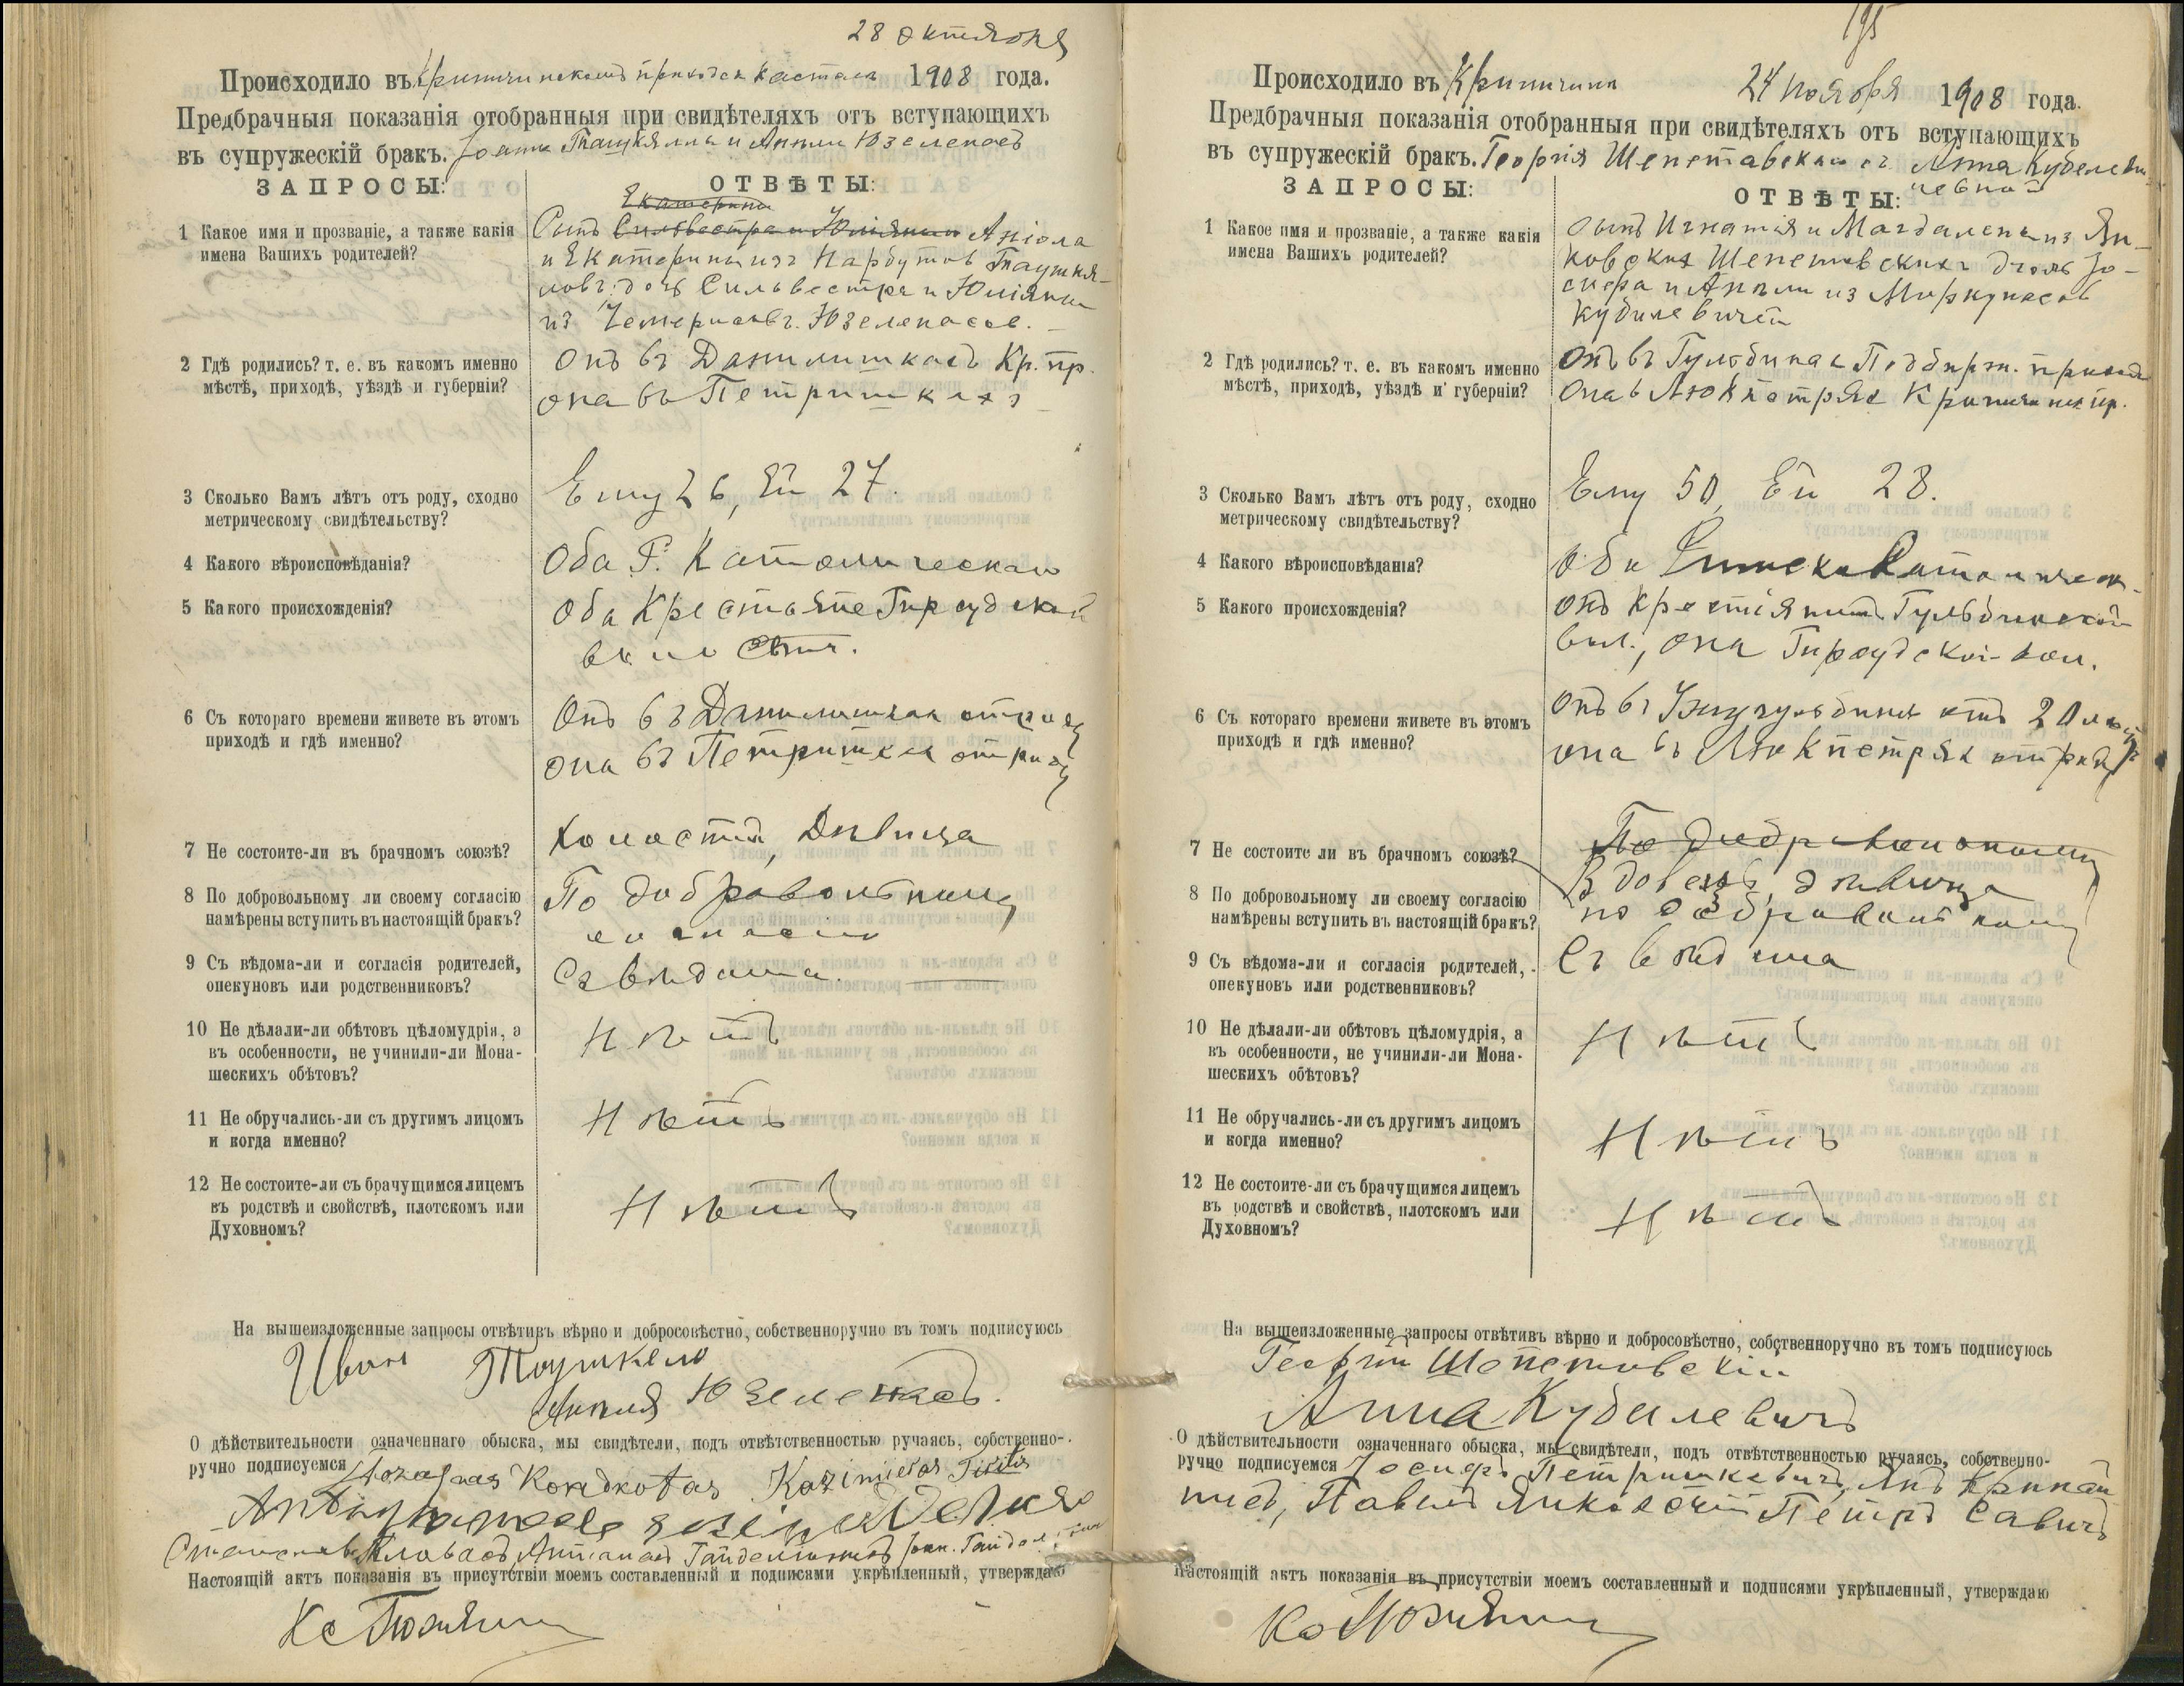 28 октября
Происходило въ приходск костела 1908 года.
Предбрачныя показанія отобранныя при свидѣтеляхъ отъ вступающихъ
въ супружескій бракъ. и Анѣли Юзеленасъ
ЗАПРОСЫ: ОТВѢТЫ:
Екатерины
1 Какое имя и прозваніе, а также какія
имена Вашихъ родителей?
Сынъ Сильвестра и Юліянны Аніола
и Екатерины изъ Нарбутов Таушкя-
ловъ. дочь Сильвестра и Юліянны
из Юзеленасов.
2 Гдѣ родились? т. е. въ какомъ именно
мѣстѣ, приходѣ, уѣздѣ и губерніи?
Онъ въ Данилишкахъ Кр. пр.
она въ Петришкахъ
3 Сколько Вамъ лѣтъ отъ роду, сходно
метрическому свидѣтельству?
Ему 26, Ей 27.
4 Какого вѣроисповѣданія?
Оба Р. Католическаго
5 Какого происхожденія?
Оба Крестьяне Гирсудской
6 Съ котораго времени живете въ этомъ
приходѣ и гдѣ именно?
Онъ въ Данилишках отрода
она въ Петришках отрода
7 Не состоите-ли въ брачномъ союзѣ?
Холостъ, Дѣвица
8 По добровольному ли своему согласію
намѣрены вступить въ настоящій бракъ?
По добравольному
согласію
9 Съ вѣдома-ли и согласія родителей,
опекуновъ или родственниковъ?
Съ вѣдома.
10 Не дѣлали-ли обѣтовъ цѣломудрія, а
въ особенности, не учинили-ли Мона-
шескихъ обѣтовъ?
Нѣтъ
11 Не обручались-ли съ другимъ лицомъ
и когда именно?
Нѣтъ
12 Не состоите-ли съ брачущимся лицемъ
въ родствѣ и свойствѣ, плотскомъ или
Духовномъ?
Нѣтъ
На вышеизложенные запросы отвѣтивъ вѣрно и добросовѣстно, собственноручно въ томъ подписуюсь
Иван Таушкело
Анѣля Юзеленасъ.
О дѣйствительности означеннаго обыска, мы свидѣтели, подъ отвѣтственностью ручаясь, собственно-
ручно подписуемся Kazimieras
Настоящій актъ показанія въ присутствіи моемъ составленный и подписами укрѣпленный, утверждаю
195
Происходило въ 24 ноября 1908 года.
Предбрачныя показанія отобранныя при свидѣтеляхъ отъ вступающихъ
въ супружескій бракъ. Георгія Шепетавскаго съ Анна Кубелеви-
чевной
ЗАПРОСЫ: ОТВѢТЫ:
1 Какое имя и прозваніе, а также какія
имена Вашихъ родителей?
Сынъ Игнатія и Магдалены из Ян-
ковских Шепетовскихъ дочь Іо-
сифа и Анѣли из Миркунасов
Кубилевичей
2 Гдѣ родились? т. е. въ какомъ именно
мѣстѣ, приходѣ, уѣздѣ и губерніи?
Онъ въ Гульбинах Подбирж. прихода
Она в Люкпетрях
3 Сколько Вамъ лѣтъ отъ роду, сходно
метрическому свидѣтельству?
Ему 50, Ей 28.
4 Какого вѣроисповѣданія?
Оба Римско Католическ.
5 Какого происхожденія?
Онъ крестіянинъ Гульбинской
вол., она Гирсудской вол.
6 Съ котораго времени живете въ этомъ
приходѣ и гдѣ именно?
Онъ въ отъ 20 лѣтъ
она въ Люкпетрях отрода
7 Не состоите ли въ брачномъ союзѣ?
По добравольному
Вдовецъ, дѣвица
8 По добровольному ли своему согласію
намѣрены вступить въ настоящій бракъ?
по добравольному
9 Съ вѣдома-ли и согласія родителей,
опекуновъ или родственниковъ?
Съ вѣдома
10 Не дѣлали-ли обѣтовъ цѣломудрія, а
въ особенности, не учинили-ли Мона-
шескихъ обѣтовъ?
Нѣтъ
11 Не обручались-ли съ другимъ лицомъ
и когда именно?
Нѣтъ
12 Не состоите-ли съ брачущимся лицемъ
въ родствѣ и свойствѣ, плотскомъ или
Духовномъ?
Нѣтъ
На вышеизложенные запросы отвѣтивъ вѣрно и добросовѣстно, собственноручно въ томъ подписуюсь
Георгій Шепетовскій
Анна Кубилевичъ
О дѣйствительности означеннаго обыска, мы свидѣтели, подъ отвѣтственностью ручаясь, собственно-
ручно подписуемся Іосифъ Петришкевичъ, Янъ
Павелъ Янковскій Петръ Савичъ
Настоящій актъ показанія въ присутствіи моемъ составленный и подписями укрѣпленный, утверждаю